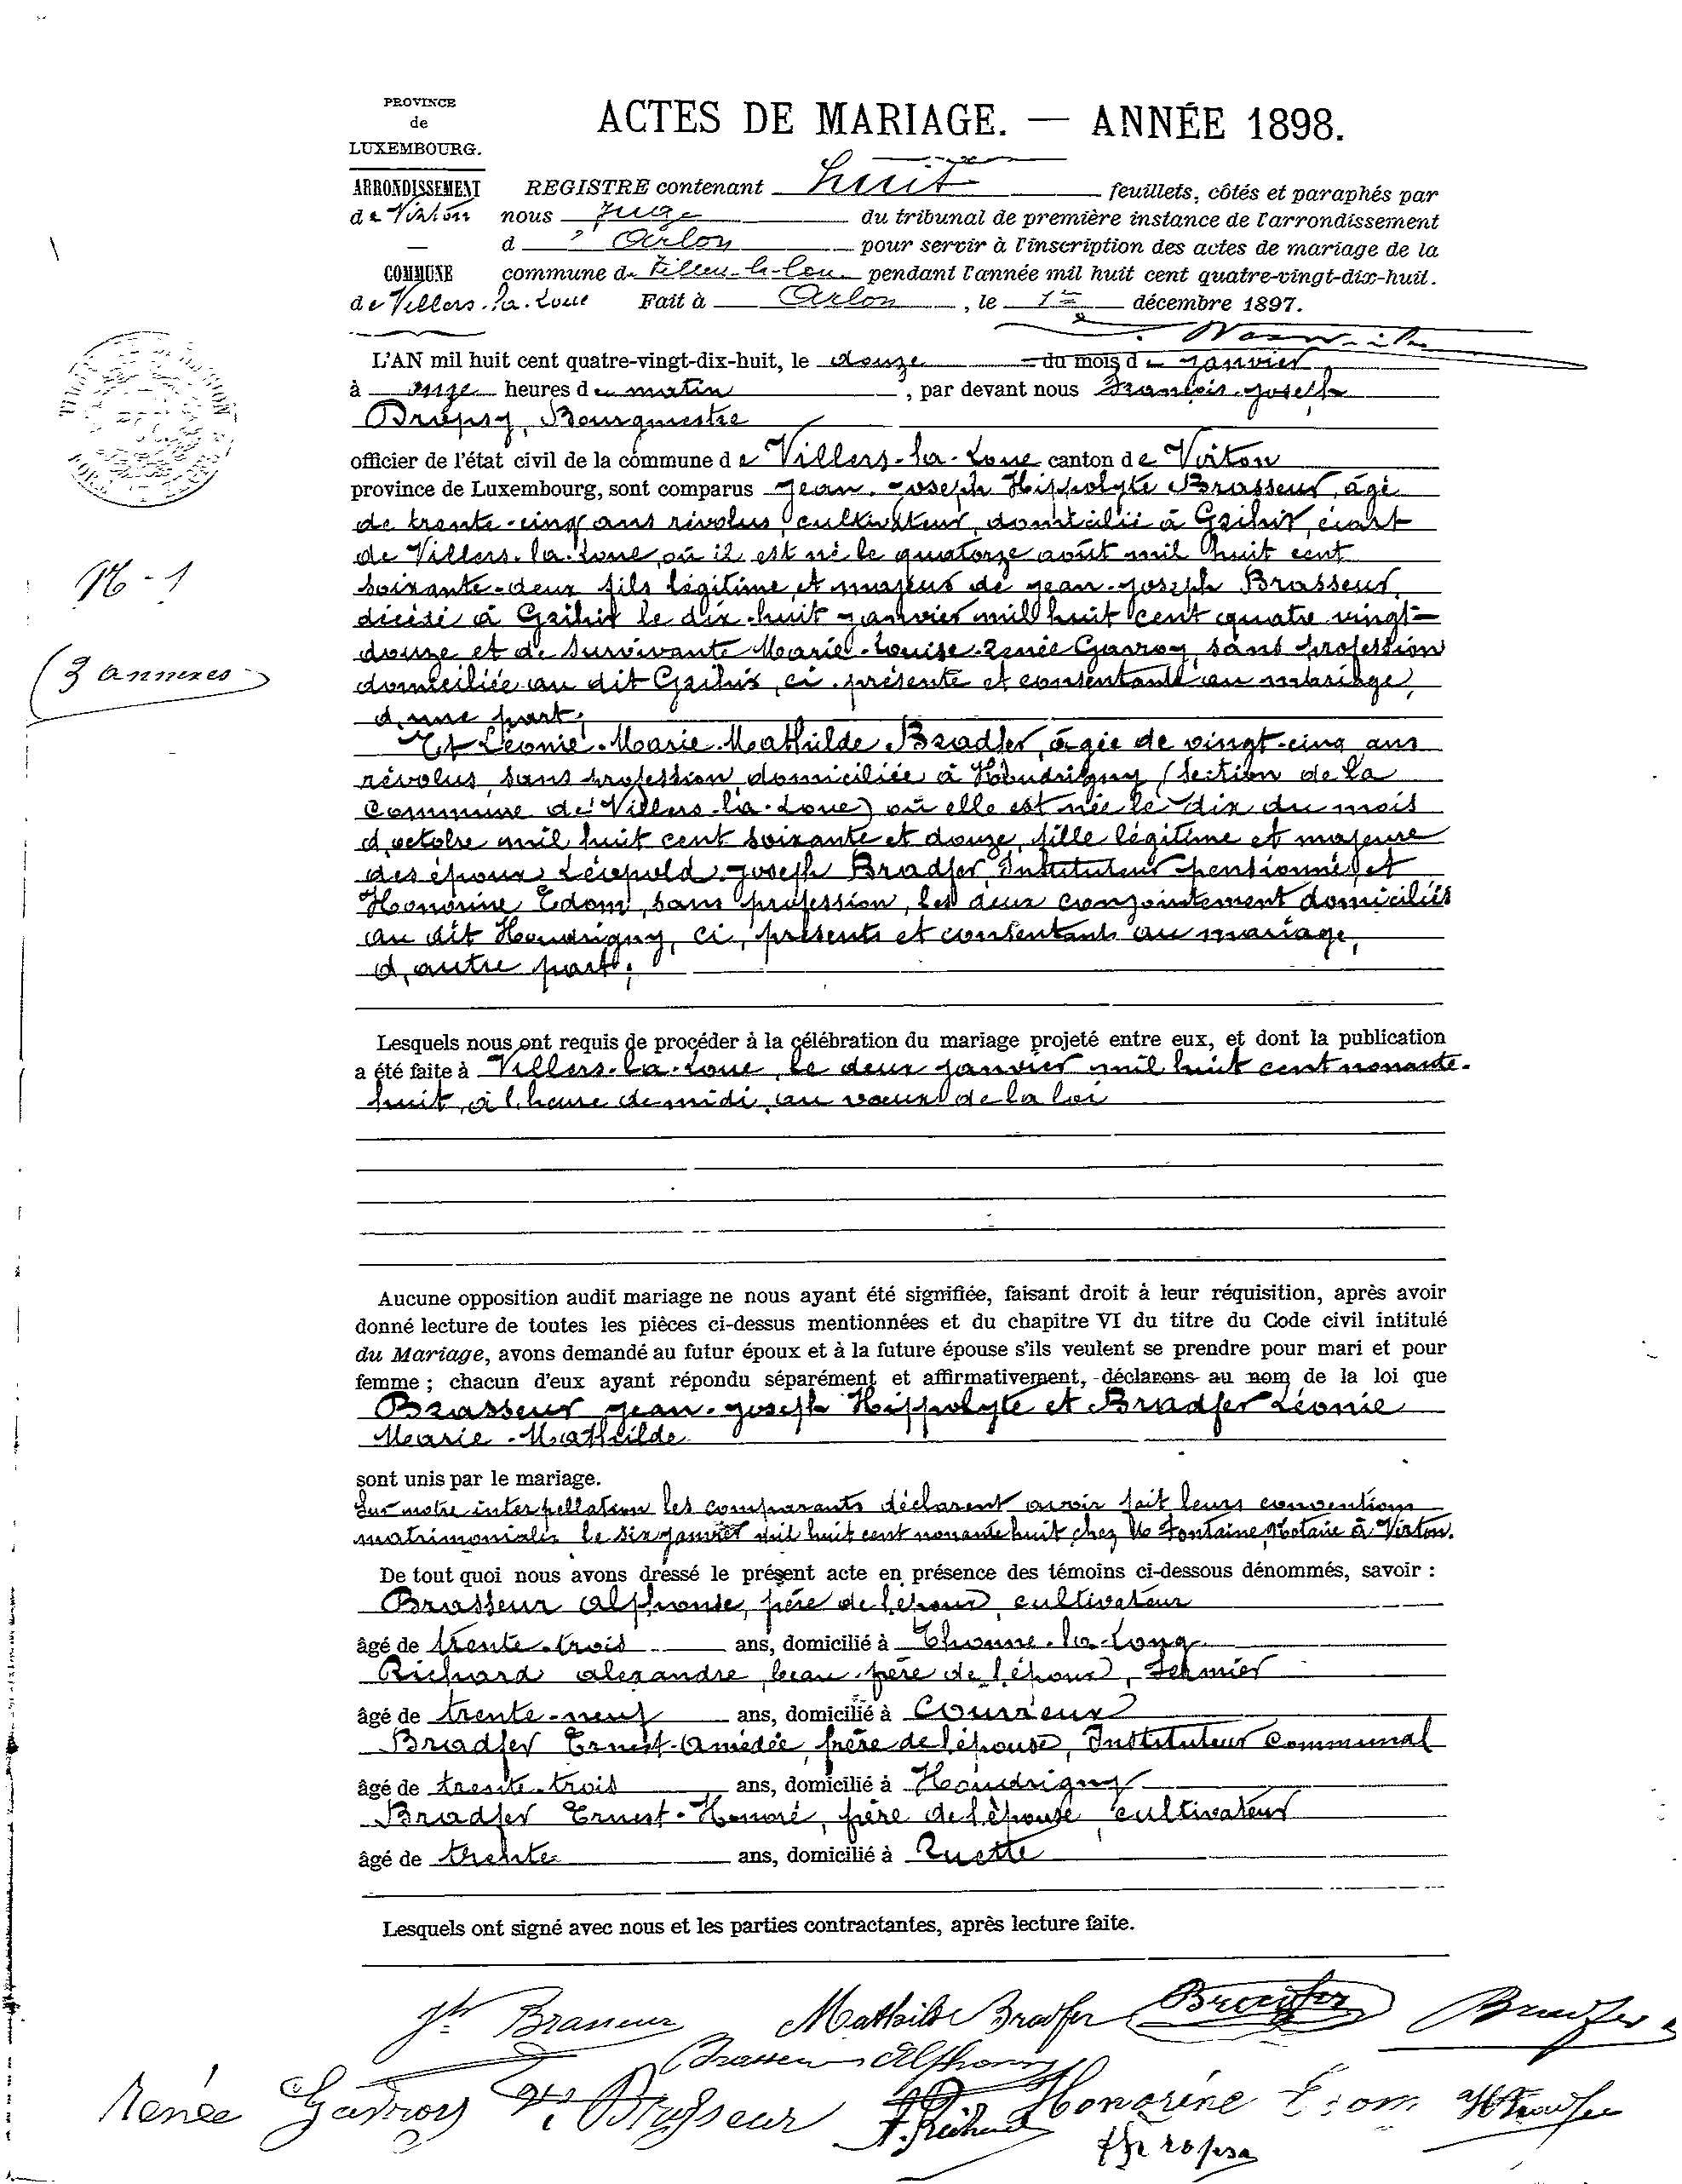 PROVINCE
de
LUXEMBOURG.
ARRONDISSEMENT
de Virton
—
COMMUNE
de Villers-la-Loue
ACTES DE MARIAGE. — ANNÉE 1898.
REGISTRE contenant huit feuillets, côtés et paraphés par
nous Juge du tribunal de première instance de l'arrondissement
d'Arlon pour servir à l'inscription des actes de mariage de la
commune de Villers-la-Loue pendant l'année mil huit cent quatre-vingt-dix-huit.
Fait à Arlon, le 1er décembre 1897.
L'AN mil huit cent quatre-vingt-dix-huit, le douze du mois de janvier
à onze heures du matin, par devant nous François-Joseph
Bourgmestre
officier de l'état civil de la commune de Villers-la-Loue canton de Virton
province de Luxembourg, sont comparus Jean-Joseph Hippolyte Brasseur, âgé
de trente-cinq ans révolus, cultivateur, domicilié à Gzihir, écart
de Villers-la-Loue, où il est né le quatorze août mil huit cent
soixante-deux fils légitime et majeur de Jean-Joseph Brasseur,
décédé à Gzihir le dix-huit janvier mil huit cent quatre vingt-
douze et de survivante Marie-Louise-Renée Gavroy, sans profession
domiciliée au dit Gzihir, ci-présente et consentante au mariage,
d'une part;
Et Léonie-Marie-Mathilde Bradfer, âgée de vingt-cinq ans
révolus, sans profession, domiciliée à Houdrigny (section de la
Commune de Villers-la-Loue) où elle est née le dix du mois
d'octobre mil huit cent soixante et douze, fille légitime et majeure
des époux Léopold-Joseph Bradfer, Instituteur pensionné, et
Honorine Edom, sans profession, les deux conjointement domiciliés
au dit Houdrigny, ci-présents et consentants au mariage,
d'autre part;
N°-1
(3 annexes)
Lesquels nous ont requis de procéder à la célébration du mariage projeté entre eux, et dont la publication
a été faite à Villers-la-Loue, le deux janvier mil huit cent nonante-
huit, à l'heure de midi, au vœux de la loi
Aucune opposition audit mariage ne nous ayant été signifiée, faisant droit à leur réquisition, après avoir
donné lecture de toutes les pièces ci-dessus mentionnées et du chapitre VI du titre du Code civil intitulé
du Mariage, avons demandé au futur époux et à la future épouse s'ils veulent se prendre pour mari et pour
femme ; chacun d'eux ayant répondu séparément et affirmativement, déclarons au nom de la loi que
Brasseur Jean-Joseph Hippolyte et Bradfer Léonie
Marie-Mathilde
sont unis par le mariage.
Sur notre interpellation les comparants déclarent avoir fait leurs conventions
matrimoniales le six janvier mil huit cent nonante huit chez Me Fontaine, Notaire à Virton.
De tout quoi nous avons dressé le présent acte en présence des témoins ci-dessous dénommés, savoir :
Brasseur Alphonse, frère de l'époux, cultivateur
âgé de trente-trois ans, domicilié à Thonne-la-Long
Richard Alexandre, beau-frère de l'époux, Fermier
âgé de trente-neuf ans, domicilié à Couvreux
Bradfer Ernest-Amédée, frère de l'épouse, Instituteur Communal
âgé de trente-trois ans, domicilié à Houdrigny
Bradfer Ernest-Honoré, frère de l'épouse, cultivateur
âgé de trente ans, domicilié à Ruette
Lesquels ont signé avec nous et les parties contractantes, après lecture faite.
Jh Brasseur Mathilde Bradfer Bradfer Bradfer
Brasseur Alphonse
Renée Gavroy Ve Brasseur A. Richard Honorine Edom H Bradfer